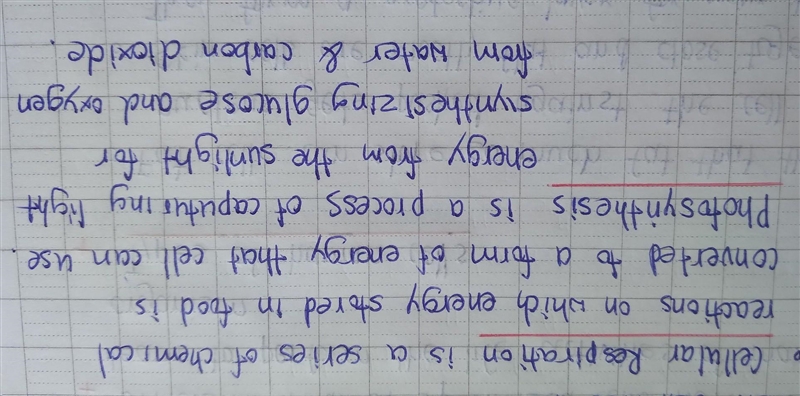 Cellular Respiration is a series of chemical
reactions on which energy stored in food is
converted to a form of energy that cell can use.
Photosynthesis is a process of caputuring light
energy from the sunlight for
synthesizing glucose and oxygen
from water & carbon dioxide.